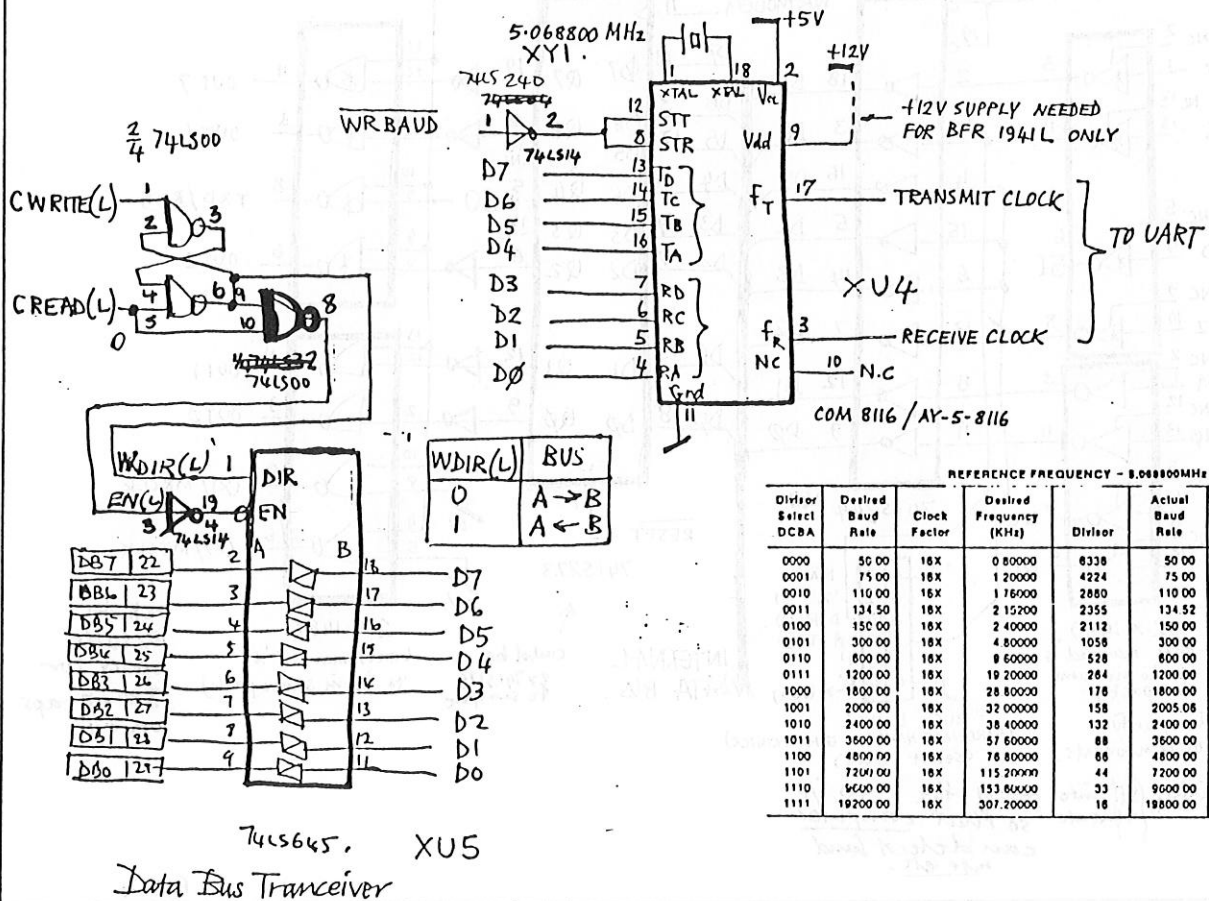 5.068800 MHz
XY1.
+5V
+12V
74LS 240
WRBAUD
1
2
74LS14
1
18
2
XTAL
XTAL
Vcc
12
STT
8
STR
Vdd
9
+12V SUPPLY NEEDED
FOR BFR 1941L ONLY
D7
13
TD
D6
14
TC
D5
15
TB
D4
16
TA
fT
17
TRANSMIT CLOCK
TO UART
D3
7
RD
D2
6
RC
D1
5
RB
DØ
4
RA
XU4
fR
3
RECEIVE CLOCK
NC
10
N.C
Gnd
11
COM 8116 / AY-5-8116
2/4 74LS00
CWRITE(L)
1
2
3
CREAD(L)
0
4
5
6
9
10
8
74LS00
WDIR(L)
1
DIR
EN(L)
3
4
19
EN
74LS14
A
B
WDIR(L) BUS
0 A → B
1 A ← B
DB7 22 2 18 D7
DB6 23 3 17 D6
DB5 24 4 16 D5
DB4 25 5 15 D4
DB3 26 6 14 D3
DB2 27 7 13 D2
DB1 28 8 12 D1
DB0 29 9 11 D0
74LS645. XU5
Data Bus Tranceiver
REFERENCE FREQUENCY - 5.068800MHz
Divisor Select DCBA Desired Baud Rate Clock Factor Desired Frequency (KHz) Divisor Actual Baud Rate
0000 50 00 16X 0 80000 6336 50 00
0001 75 00 16X 1 20000 4224 75 00
0010 110 00 16X 1 76000 2880 110 00
0011 134 50 16X 2 15200 2355 134 52
0100 150 00 16X 2 40000 2112 150 00
0101 300 00 16X 4 80000 1056 300 00
0110 600 00 16X 9 60000 528 600 00
0111 1200 00 16X 19 20000 264 1200 00
1000 1800 00 16X 28 80000 176 1800 00
1001 2000 00 16X 32 00000 158 2005.06
1010 2400 00 16X 38 40000 132 2400 00
1011 3600 00 16X 57 60000 88 3600 00
1100 4800 00 16X 76 80000 66 4800 00
1101 7200 00 16X 115 20000 44 7200 00
1110 9600 00 16X 153 60000 33 9600 00
1111 19200 00 16X 307.20000 16 19800 00